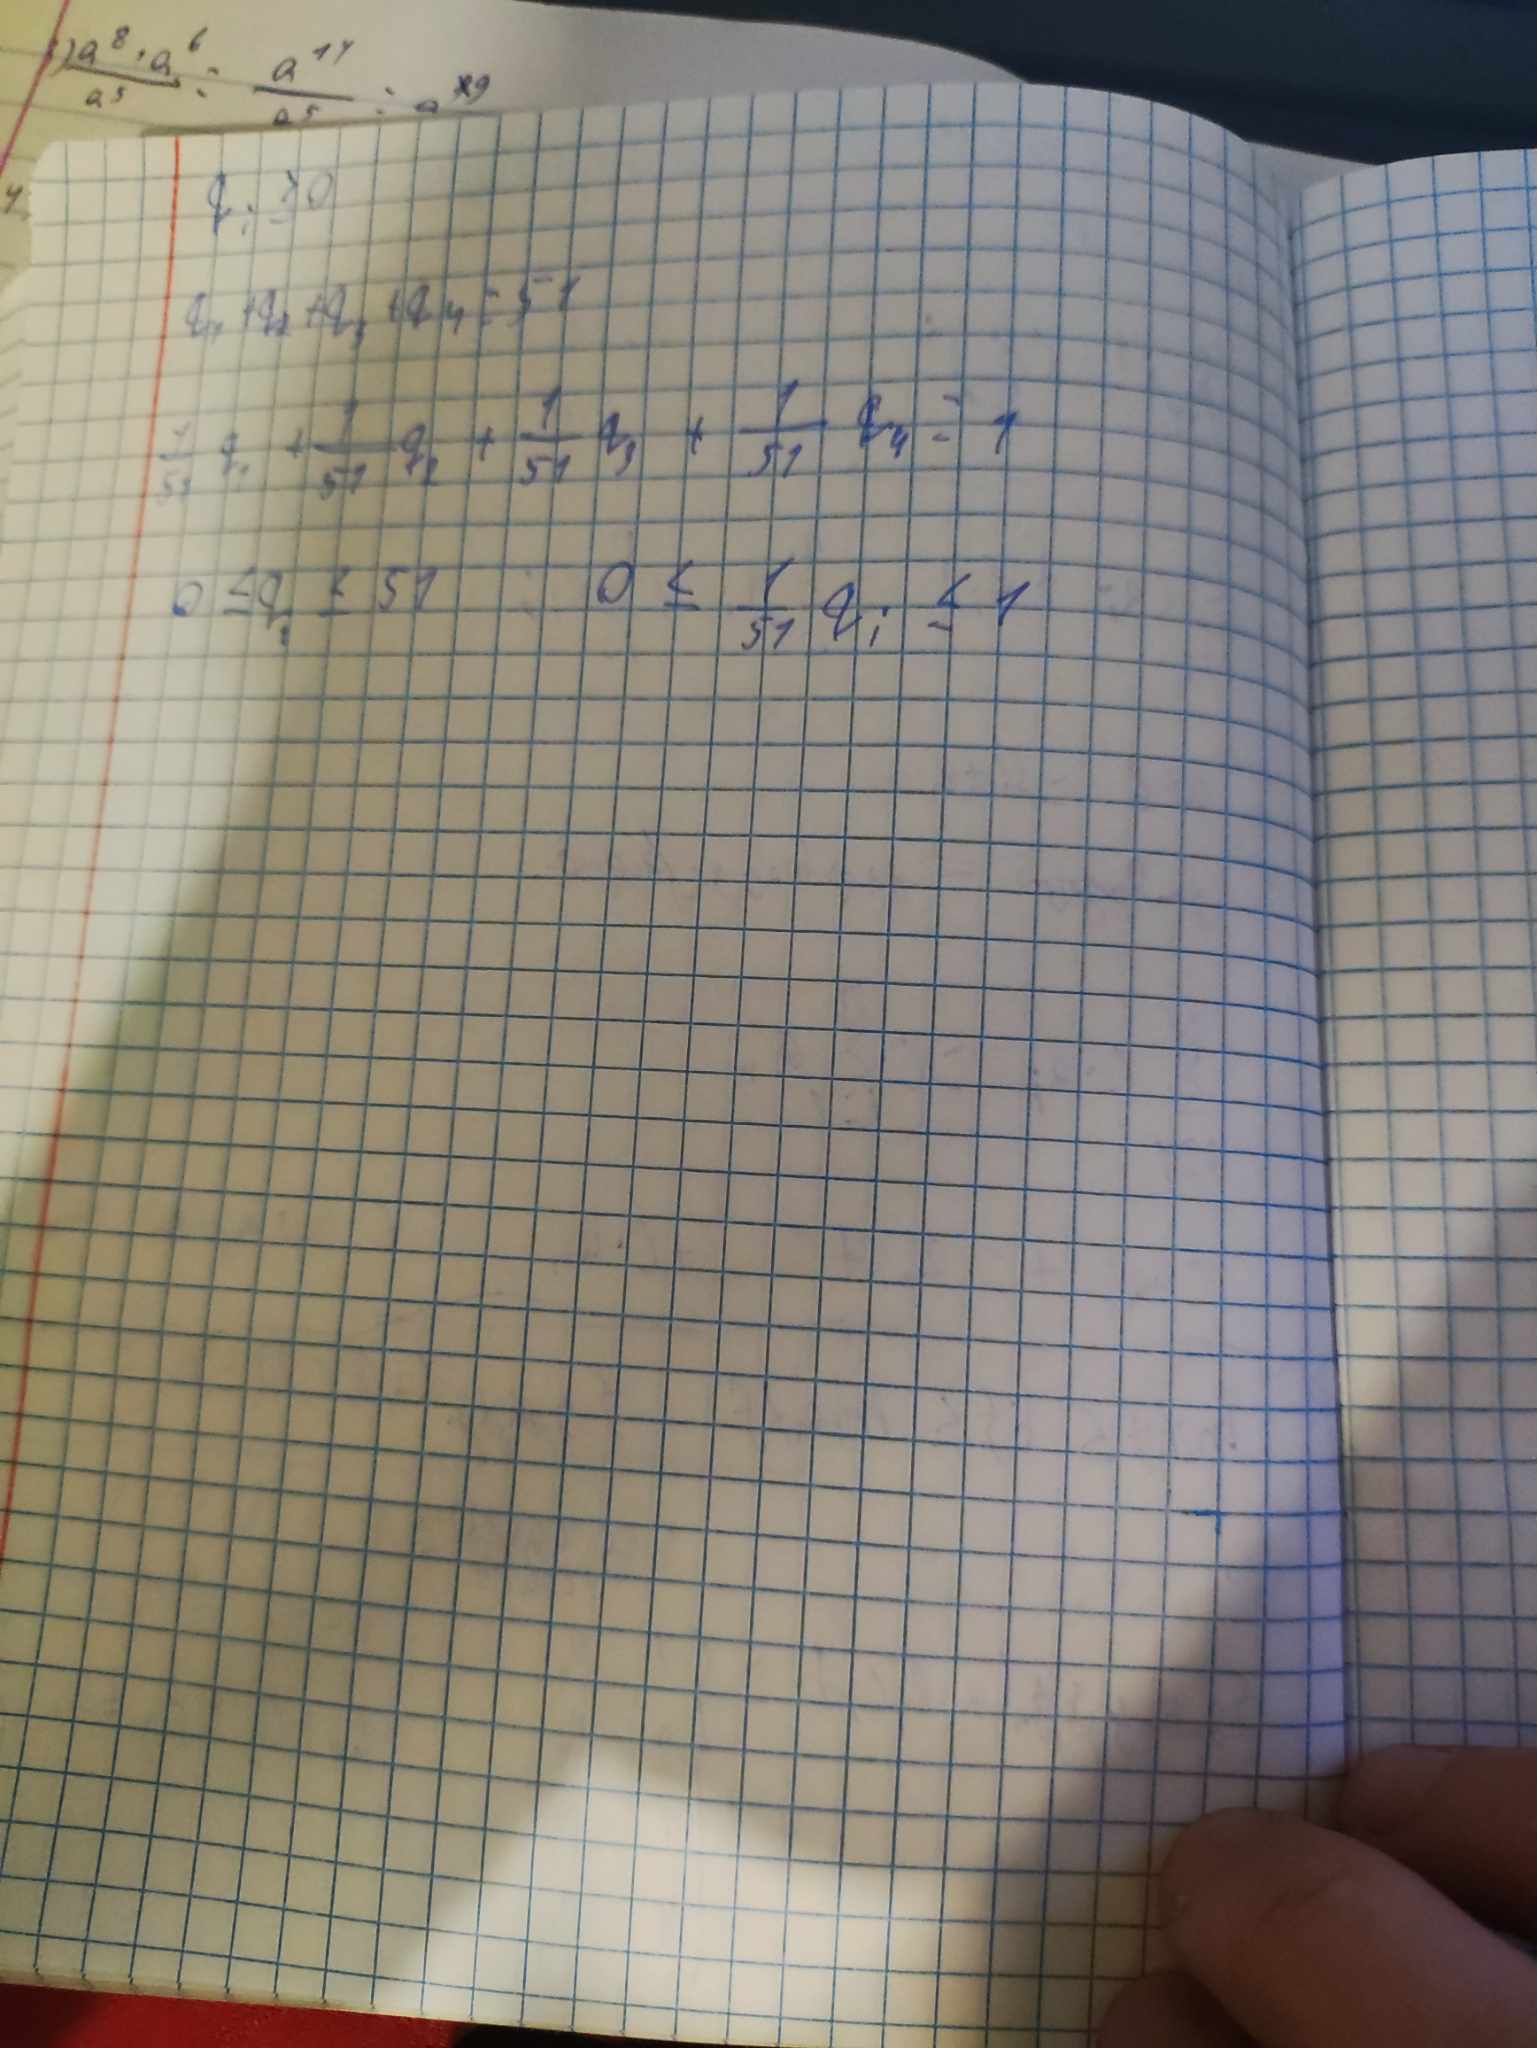 )a⁸·a⁶/a⁵ = a¹⁴/a⁵ = a⁹
qᵢ ≥ 0
q₁ + q₂ + q₃ + q₄ = 51
1/51 q₁ + 1/51 q₂ + 1/51 q₃ + 1/51 q₄ = 1
0 ≤ qᵢ ≤ 51 0 ≤ 1/51 qᵢ ≤ 1